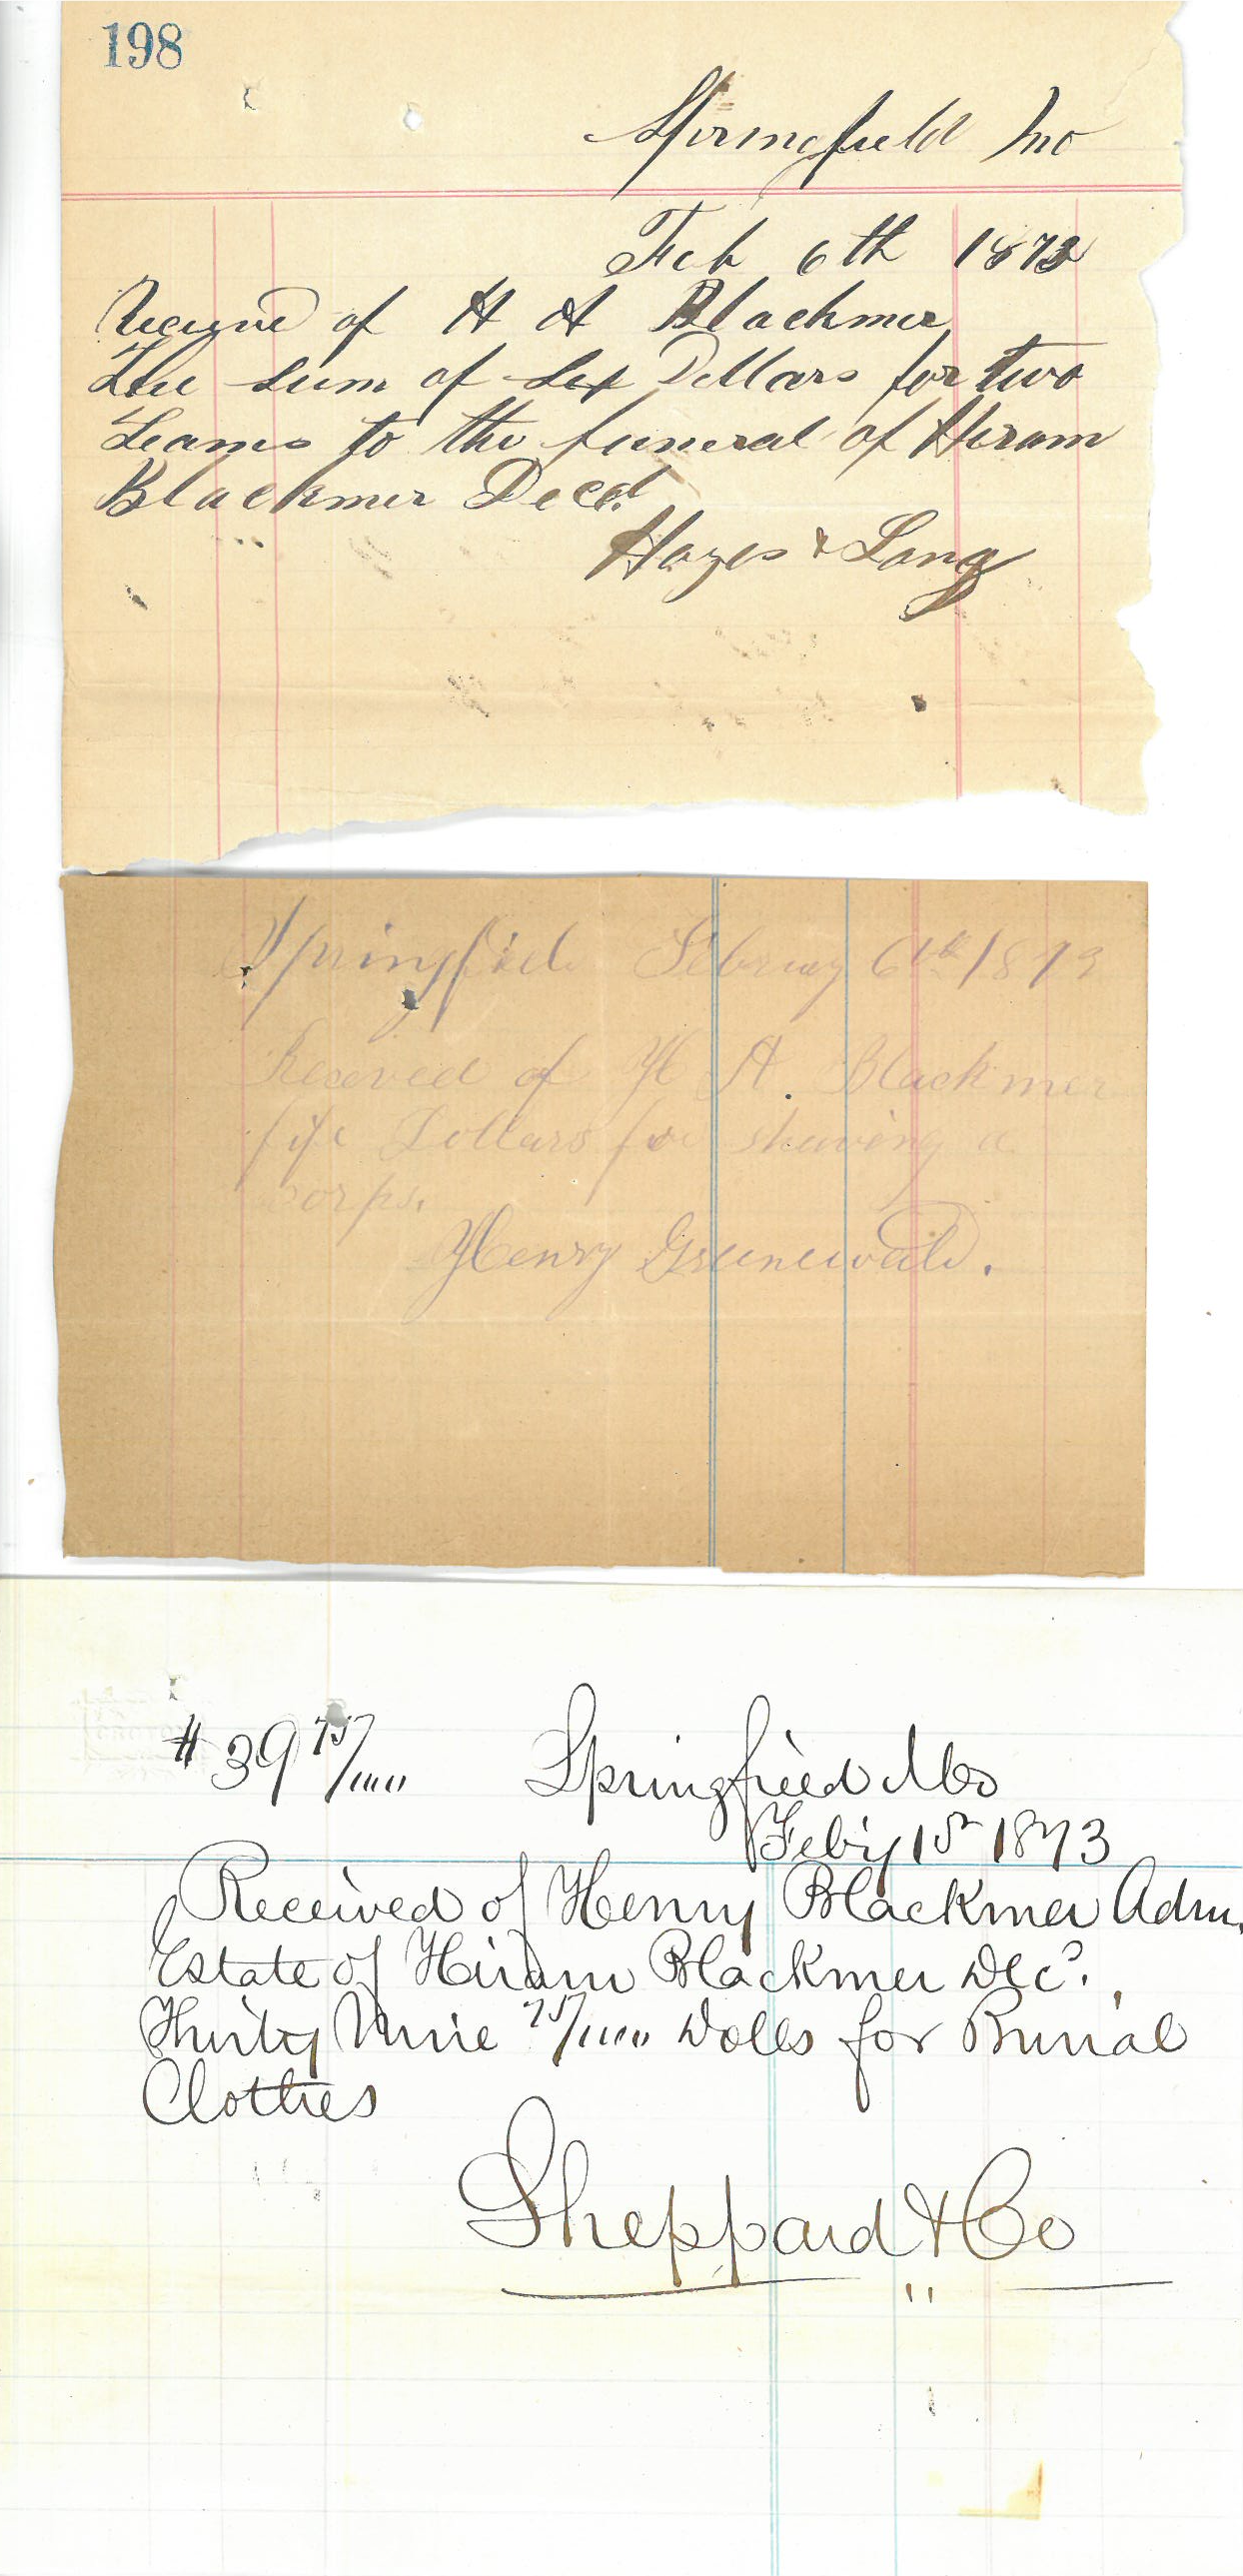 198
Springfield Mo
Feb 6th 1873
Recived of H A Blackmer
The sum of Six Dollars for two
teams to the funeral of Hiram
Blackmer Decd
Hayes & Lang
Springfield February 6th 1873
Received of H A. Blackmer
fife Dollars for shaving a
corps.
Henry Grunewald.
$39 75/100 Springfield Mo
Feby 15 1873
Received of Henry Blackmer Adm.
Estate of Hiram Blackmer Decd.
Thirty Nine 75/100 Dolls for Burial
Clothes
Sheppard & Co